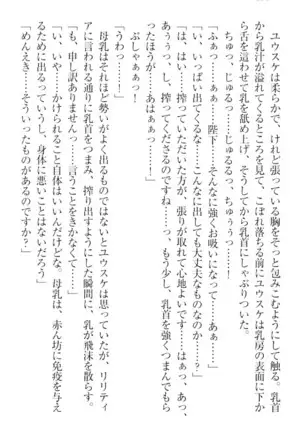 ユウスケは柔らかで、けれど張っている胸をそっと包みこむようにして触る。乳首
から乳汁が溢れてくるところを見て、こぼれ落ちる前にユウスケは乳房の表面に下か
ら舌を這わせて乳を舐め上げ、そうしてから乳首にしゃぶりついた。
　ちゅっ。じゅるっ……じゅるるっ、ちゅぅぅっ……！
「ふぁっ……ぁぁっ……陛下……そんなに強くお吸いになって……あぁ……」
「い、いっぱい出てくるな……こんなに出しても大丈夫なものなのか？」
「はぁ……搾っていただいた方が、張りが取れて心地よいです……っ、乳首を強くつまんでもら
ったほうが……あはぁぁっ……！」
　ぷしゃぁぁっ……！
「うわっ……！」
　母乳はそれほど勢いがよく出るものではないとユウスケは思っていたが、リリティ
アに言われる通りに乳首をつまみ、搾り出すようにした瞬間に、乳が飛沫を散らす。
「も、申し訳ありませんっ……言うことをきかなくて……」
「い、いや……かけられること自体はいいんだけどな。母乳は、赤ん坊に免疫を与え
るために出るっていうし、身体に悪いことはないだろう」
「めんえき……そういったものがあるのですか？」